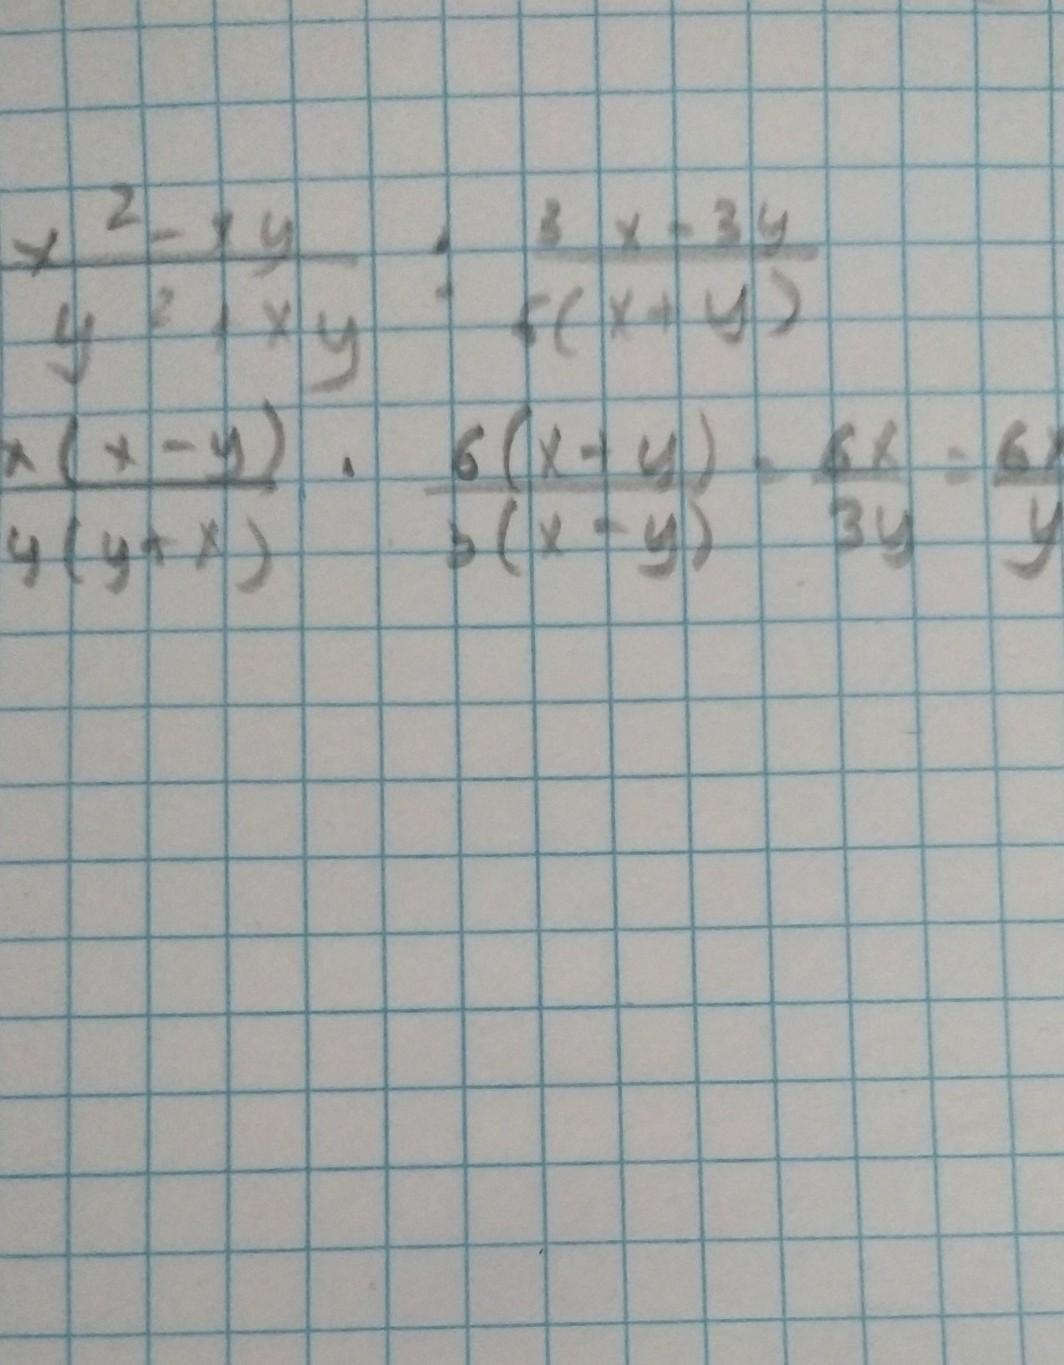 x² - xy / y² + xy : 3x - 3y / 6(x + y)
x(x - y) / y(y + x) · 6(x + y) / 3(x - y) = 6x / 3y = 6x / y